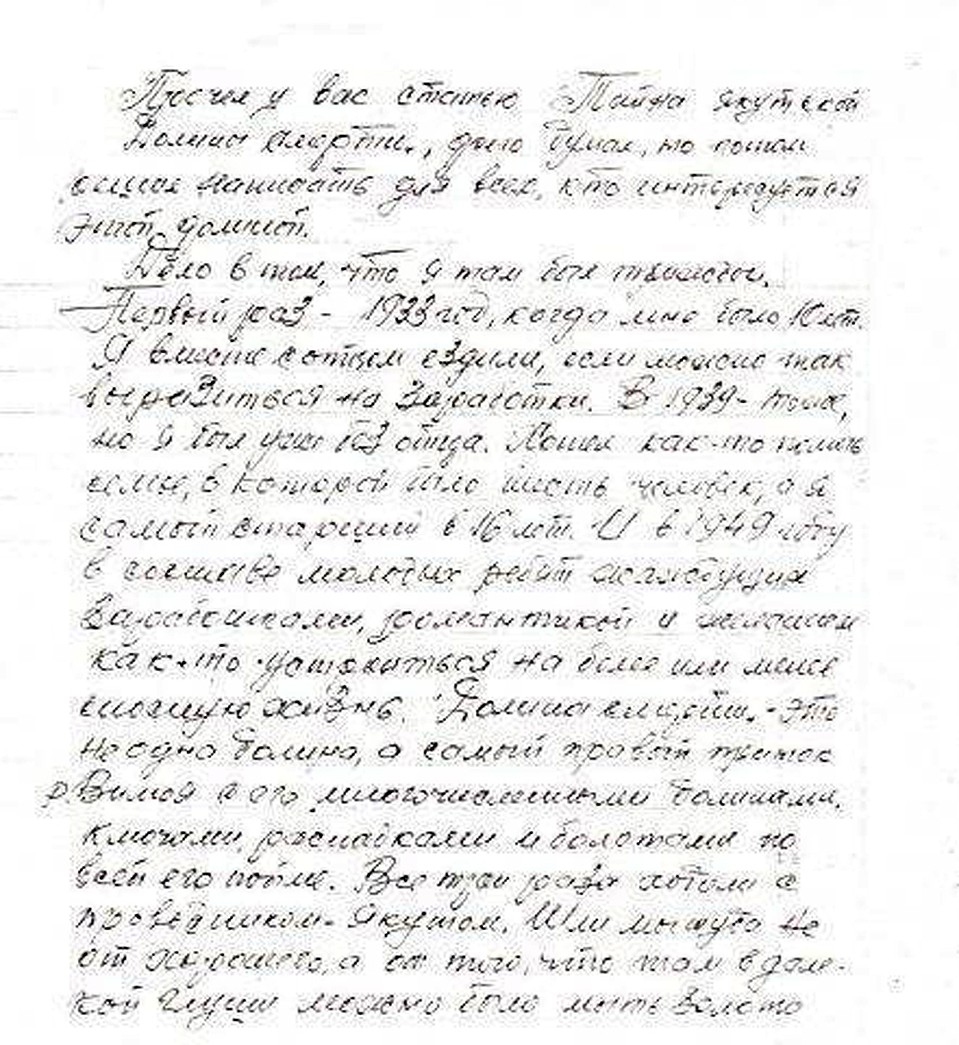 Прочел у вас статью "Тайна якутской
Долины смерти", долго думал, но потом
решил написать для всех, кто интересуется
этой долиной.
Дело в том, что я там был трижды.
Первый раз - 1933 год, когда мне было 10 лет.
Я вместе с отцом ездили, если можно так
выразиться на заработки. В 1939- тоже,
но я был уже без отца. Хотел как-то помочь
семье, в которой было шесть человек, а я
самый старший в 16 лет. И в 1949 году
в составе молодых ребят
заработками, романтикой и желанием
как-то устроиться на более или менее
сносную жизнь. "Долина смерти" - это
не одна долина, а самый правый приток
р. Вилюя с его многочисленными долинами,
ключами, распадками и болотами по
всей его пойме. Все три раза ходили с
проводником-якутом. Шли мы туда не
от хорошего, а от того, что там в дале-
кой глуши можно было мыть золото